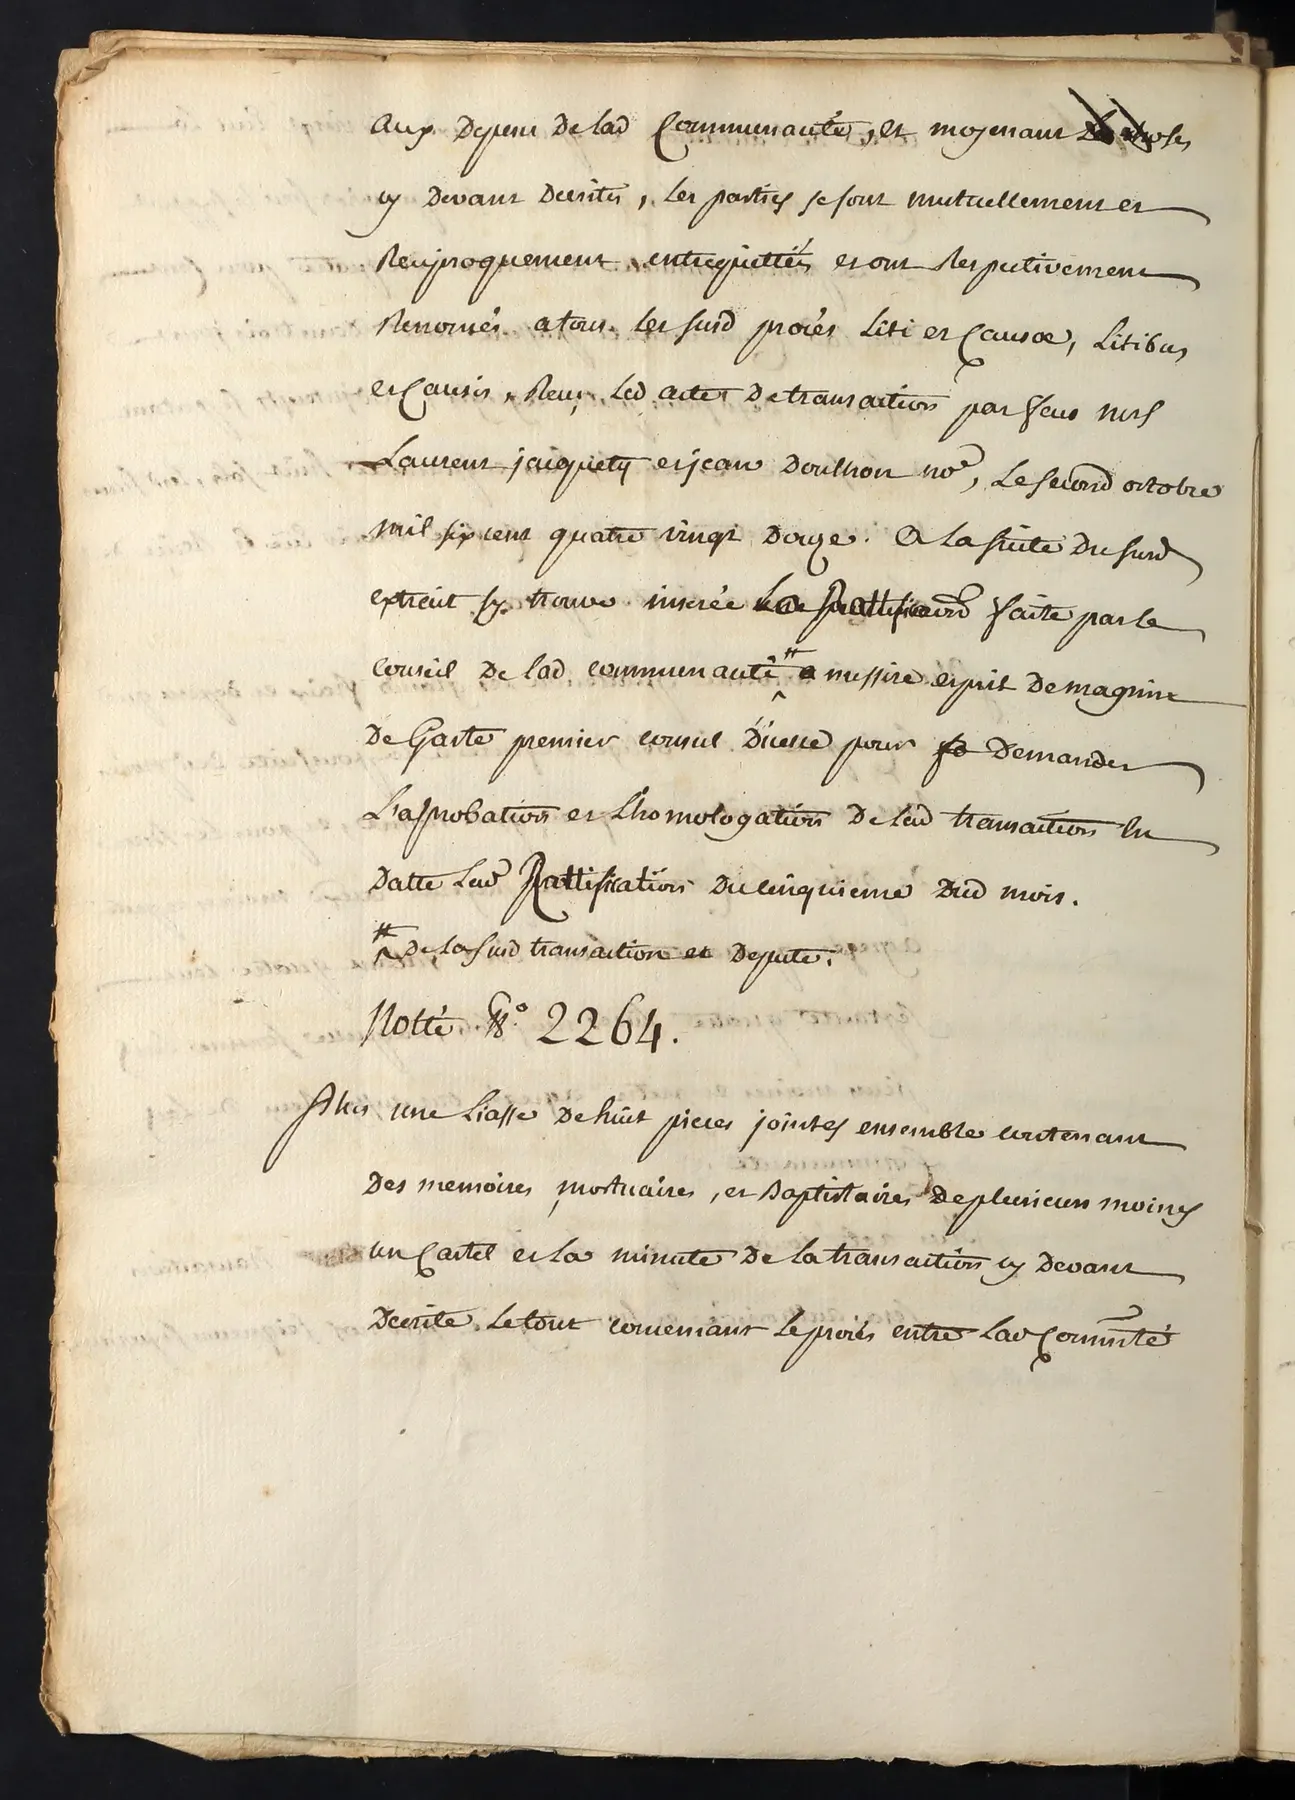 aux depens de lad Communauté, et moyenant choses
cy devant decrites, les parties se sont mutuellement et
Reciproquement entrequittées et ont Respectivement
Renoncés a tous les susd procès Liti et Causæ, Litibus
et Causis, Reçu led acte de transaction par feus mes
Laurent jaiquety et jean Doulhon no.e, Le second octobre
mil six cent quatre vingt douze. A la suite du susd
extrait sy trouve inserée La faite par le
conseil de lad communauté # a messire esprit de
De Gaste premier consul pour demander
L'aprobation et L'homologation de lad transaction en
datte lad Rattification du cinquieme dud mois.
# de la susd transaction et deputé.
Notté N.° 2264.
Plus une Liasse de huit pieces jointes ensemble contenant
des memoires, mortuaires, et Baptistaires de plusieurs moines
un Cartel et la minute de la transaction cy devant
decrite. Le tout concernant le procès entre lad Comm.té